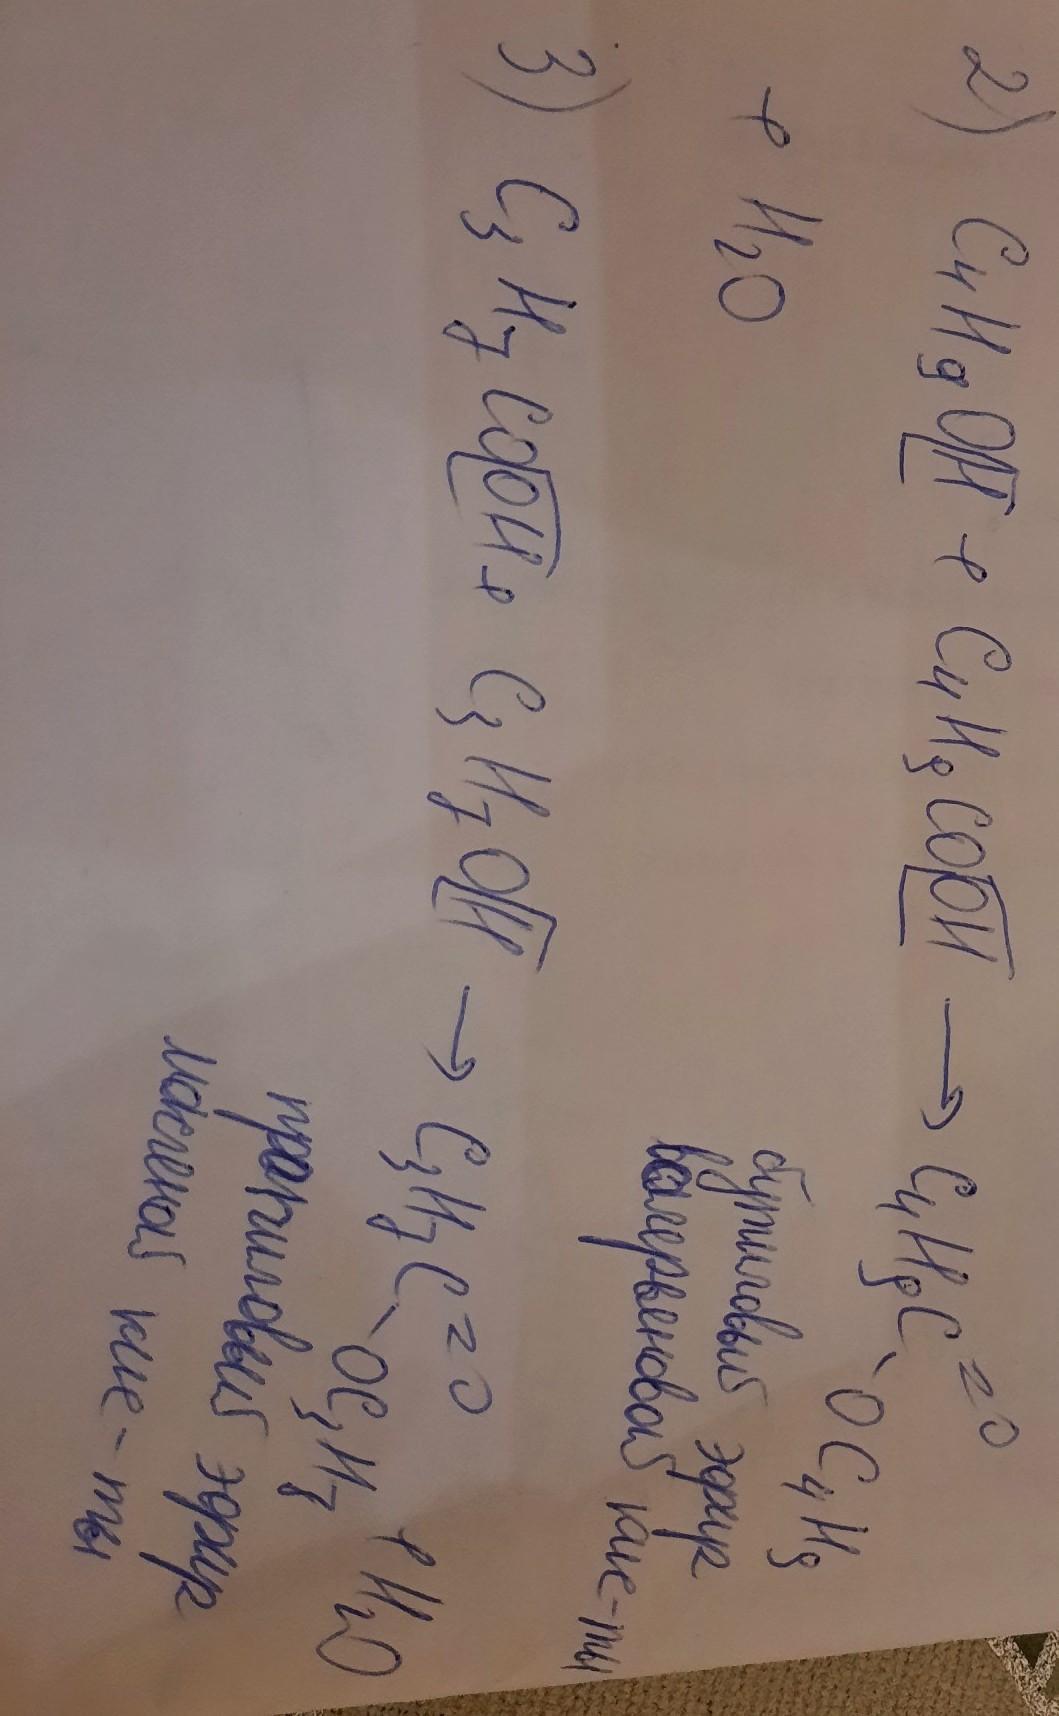 2) C₄H₉OH + C₄H₉COOH → C₄H₉C=O
OC₄H₉
+ H₂O
бутиловый эфир
валерьеновой кис-ты
3) C₃H₇COOH + C₃H₇OH → C₃H₇C=O
OC₃H₇ + H₂O
пропиловый эфир
масленой кис-ты